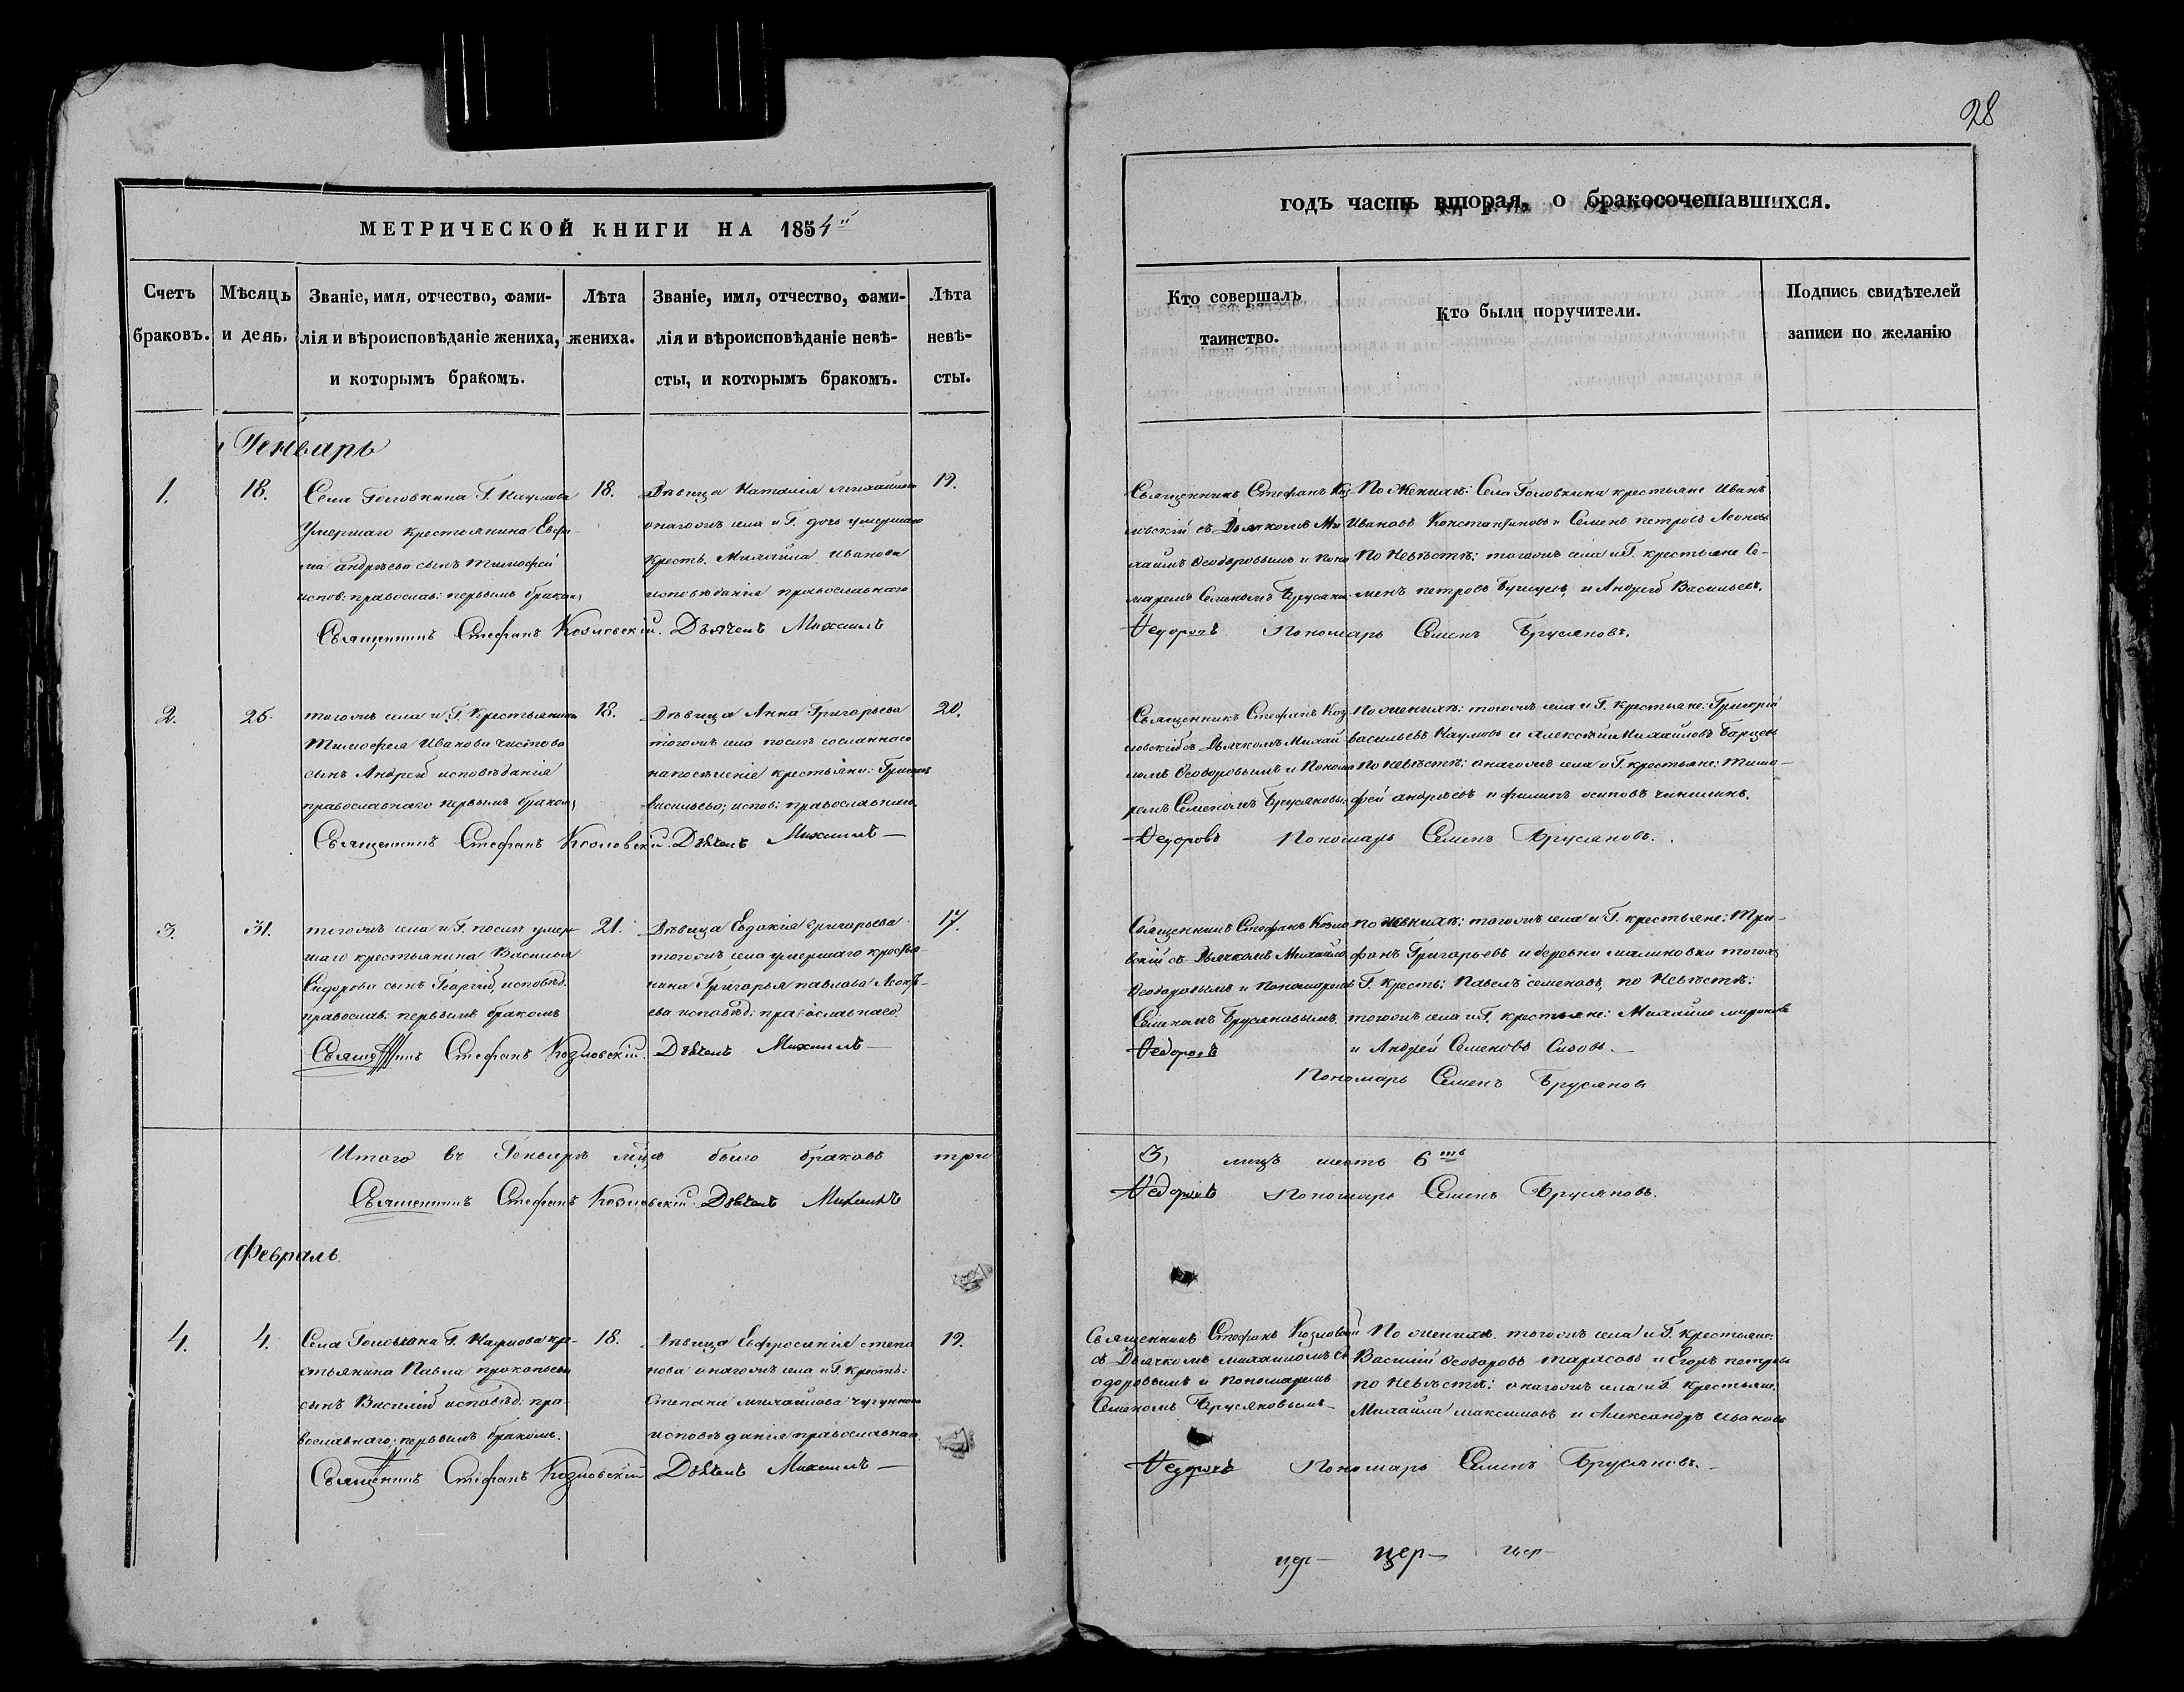 28
МЕТРИЧЕСКОЙ КНИГИ НА 1854й
Счетъ браковъ.
Мѣсяцъ и день.
Званіе, имя, отчество, фами-
лія и вѣроисповѣданіе жениха,
и которымъ бракомъ.
Лѣта
жениха.
Званіе, имя, отчество, фами-
лія и вѣроисповѣданіе невѣ-
сты, и которымъ бракомъ.
Лѣта
невѣ-
сты.
Генварь
1.
18.
Села Головкина Г. Наумова
Умершаго крестьянина Евфи-
ма андрѣева сынъ Тимофей
испов: православ: первымъ бракомъ
18.
Дѣвица Наталія Михайлова
онагожъ села и Г. дочь умершаго
кресть. Михайла Иванова
исповѣданія православнаго
19.
Священникъ Стефанъ Козловскій. Дьячекъ Михаилъ
2.
25.
тогожъ села и Г. Крестьянина
Тимофея Иванова чистова
сынъ Андрей исповѣданія
православнаго первымъ бракомъ
18.
Дѣвица Анна Григорьева
тогожъ села послѣ сосланнаго
на поселеніе крестьяни:
васильева; испов: православнаго.
20.
Священникъ Стефанъ Козловскій. Дьячекъ Михаилъ
3.
31.
тогожъ села и Г. послѣ умер-
шаго крестьянина Василья
Сидорова сынъ Георгій исповѣд.
православ. первымъ бракомъ
21.
Дѣвица Евдокія григорьева
тогожъ села умершаго крестья-
нина Григорья павлова
исповѣд: православнаго.
17.
Священникъ Стефанъ Козловскій. Дьячекъ Михаилъ
Итого въ Генварѣ мѣцѣ было браковъ три
Священникъ Стефанъ Козловскій. Дьячекъ Михаилъ
Февраль.
4.
4.
Села Головкина Г. Наумова кре-
стьянина Павла прокопьева
сынъ Василій исповѣд: пра-
вославнаго; первымъ бракомъ.
18.
Дѣвица Евфросинія степа
нова онагожъ села и Г. крестъ:
Степана михайлова чугунова
исповѣданія православнаго.
19.
Священникъ Стефанъ Козловскій Дьячекъ Михаилъ
годъ часть вторая, о бракосочетавшихся.
Кто совершалъ
таинство.
Кто были поручители.
Подпись свидѣтелей
записи по желанію
Священникъ Стефанъ Коз-
ловскій съ Дьячкомъ Ми
хаиломъ Ѳеодоровымъ и Поно
маремъ Семеномъ Брусяно
По Женихѣ: Села Головкина крестьяне Иванъ
Ивановъ Константиновъ и Семенъ петровъ Леоновъ
По Невѣстѣ: тогожъ села и Г. крестьяне Се-
менъ петровъ и Андрей Васильевъ.
Ѳедоровъ Пономарь Семенъ Брусяновъ.
Священникъ Стефанъ Коз
ловскій съ Дьячкомъ Михаи
ломъ Ѳеодоровымъ и Понома
ремъ Семеномъ Брусяновы
По женихѣ: тогожъ села и Г. Крестьяне: Григорій
васильевъ Наумовъ и алексѣй Михайловъ
По невѣстѣ: онагожъ села и Г. крестьяне: Тимо-
фей андрѣевъ и филипъ осиповъ чинилинъ.
Ѳедоровъ Пономарь Семенъ Брусяновъ.
Священникъ Стефанъ Козло
вскій съ Дьячкомъ Михаило
Ѳеодоровымъ и пономаремъ
Семеномъ Брусяновымъ.
по женихѣ: тогожъ села и Г. крестьяне: Три-
фонъ Григорьевъ и деревни малиновки тогожъ
Г. кресть: Павелъ семеновъ, по Невѣстѣ:
тогожъ села и Г. крестьяне: Михайло мироновъ
и Андрей Семеновъ Сизовъ.
Ѳедоровъ
Пономарь Семенъ Брусяновъ
3, лицъ шесть 6ть
Ѳедоровъ Пономарь Семенъ Брусяновъ.
Священникъ Стефанъ Козловскій
съ Дьячкомъ михаиломъ Ѳе
одоровымъ и пономаремъ
Семеномъ Брусяновымъ
По женихѣ. тогожъ села и Г. крестьяне:
Василій Ѳеодоровъ тарасовъ и Егоръ петровъ
по невѣстѣ: онагожъ села и Г. крестьяне:
Михайла максимовъ и Александръ ивановъ
Ѳедоровъ Пономарь Семенъ Брусяновъ.
цер- цер- цер-